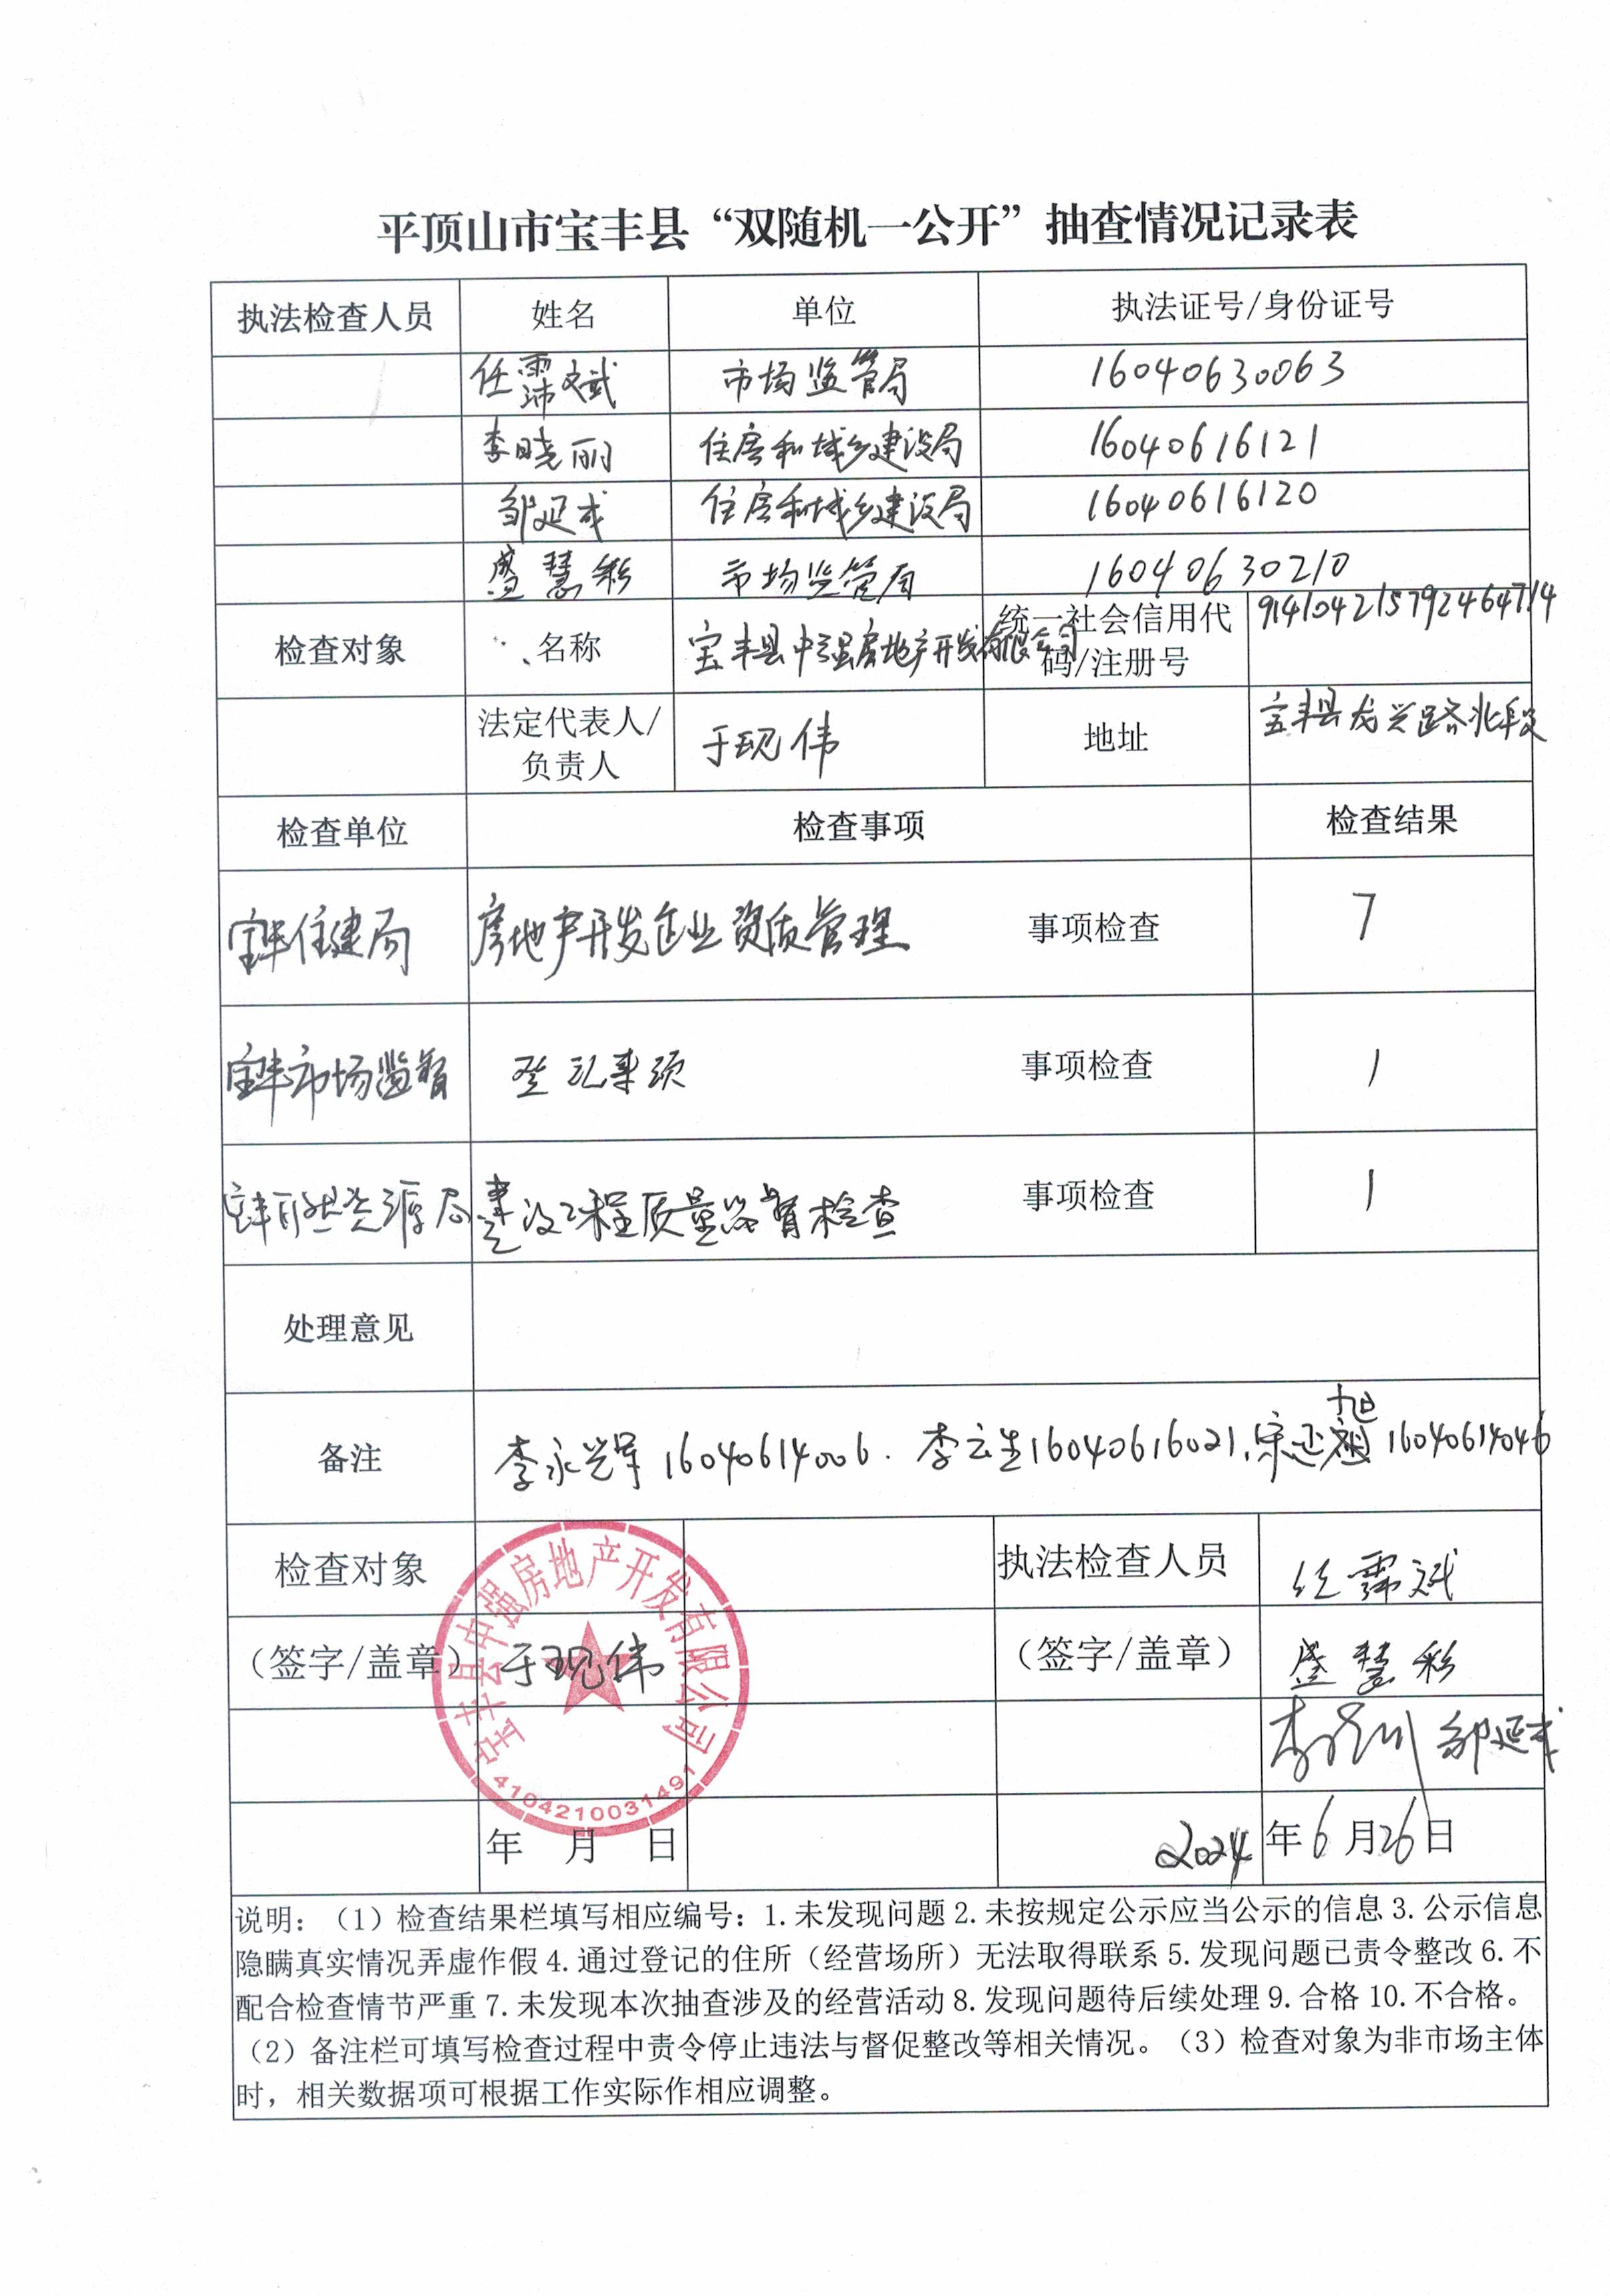 平顶山市宝丰县“双随机一公开”抽查情况记录表
执法检查人员 姓名 单位 执法证号/身份证号
任霈斌 市场监管局 16040630063
李晓丽 住房和城乡建设局 16040616121
邹延成 住房和城乡建设局 16040616120
盛慧彩 市场监管局 16040630210
检查对象 名称 宝丰县中强房地产开发有限公司 统一社会信用代码/注册号 914104215792464714
法定代表人/负责人 于现伟 地址 宝丰县龙兴路北段
检查单位 检查事项 检查结果
宝丰住建局 房地产开发企业资质管理 事项检查 7
宝丰市场监督 登记事项 事项检查 1
宝丰自然资源局 建设工程质量监督检查 事项检查 1
处理意见
备注 李永兴军 16040614006. 李云生16040616021. 宋延旭 16040614046
检查对象 执法检查人员 任霈斌
（签字/盖章） 于现伟 （签字/盖章） 盛慧彩
邹延成
宝丰县中强房地产开发有限公司
4104210031491
年 月 日 2024年6月26日
说明：（1）检查结果栏填写相应编号：1.未发现问题 2.未按规定公示应当公示的信息 3.公示信息
隐瞒真实情况弄虚作假 4.通过登记的住所（经营场所）无法取得联系 5.发现问题已责令整改 6.不
配合检查情节严重 7.未发现本次抽查涉及的经营活动 8.发现问题待后续处理 9.合格 10.不合格。
（2）备注栏可填写检查过程中责令停止违法与督促整改等相关情况。（3）检查对象为非市场主体
时，相关数据项可根据工作实际作相应调整。